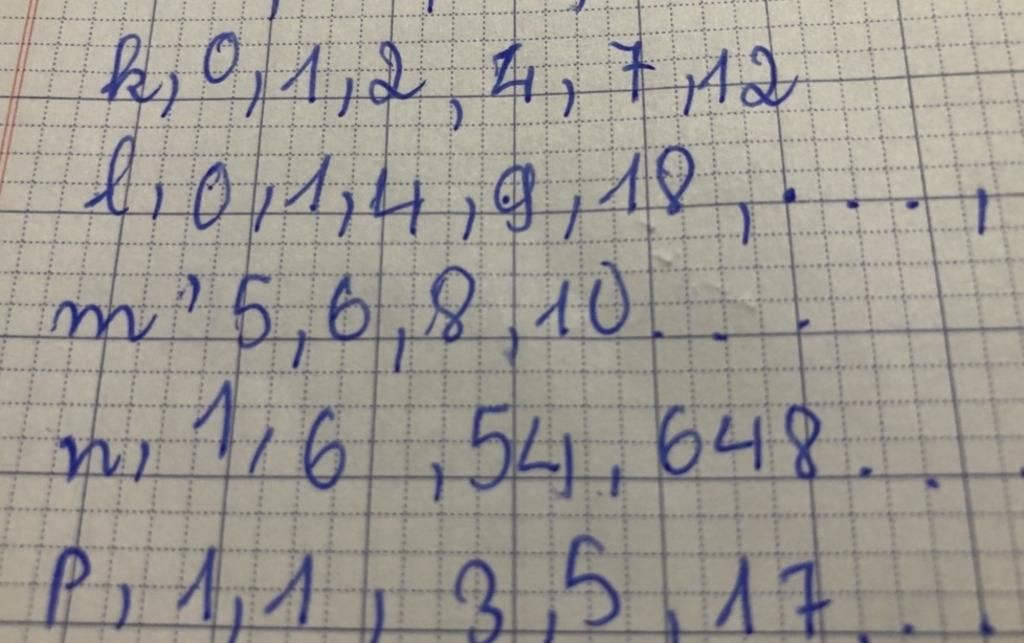 k, 0, 1, 2, 4, 7, 12
l, 0, 1, 4, 9, 18, . . . ,
m, 5, 6, 8, 10 . . .
n, 1, 6, 54, 648 . . .
p, 1, 1, 3, 5, 17 . . .